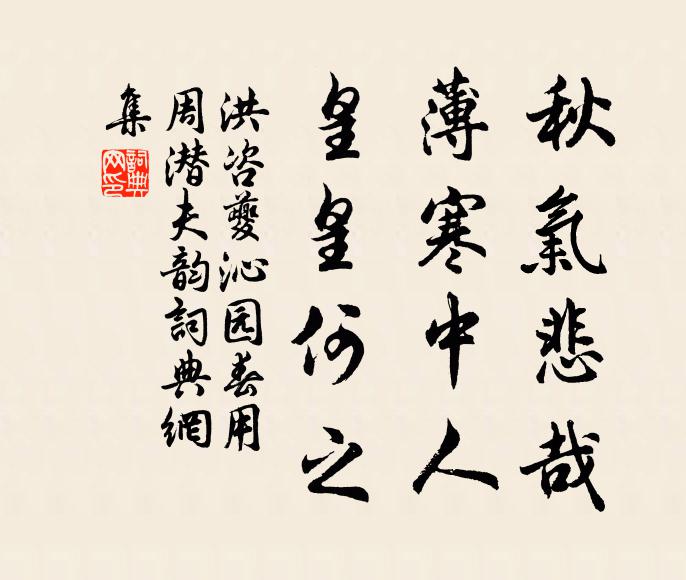 秋氣悲哉
薄寒中人
皇皇何之
洪咨夔沁园春用
周潜夫韵詞典網
集
詞典網印